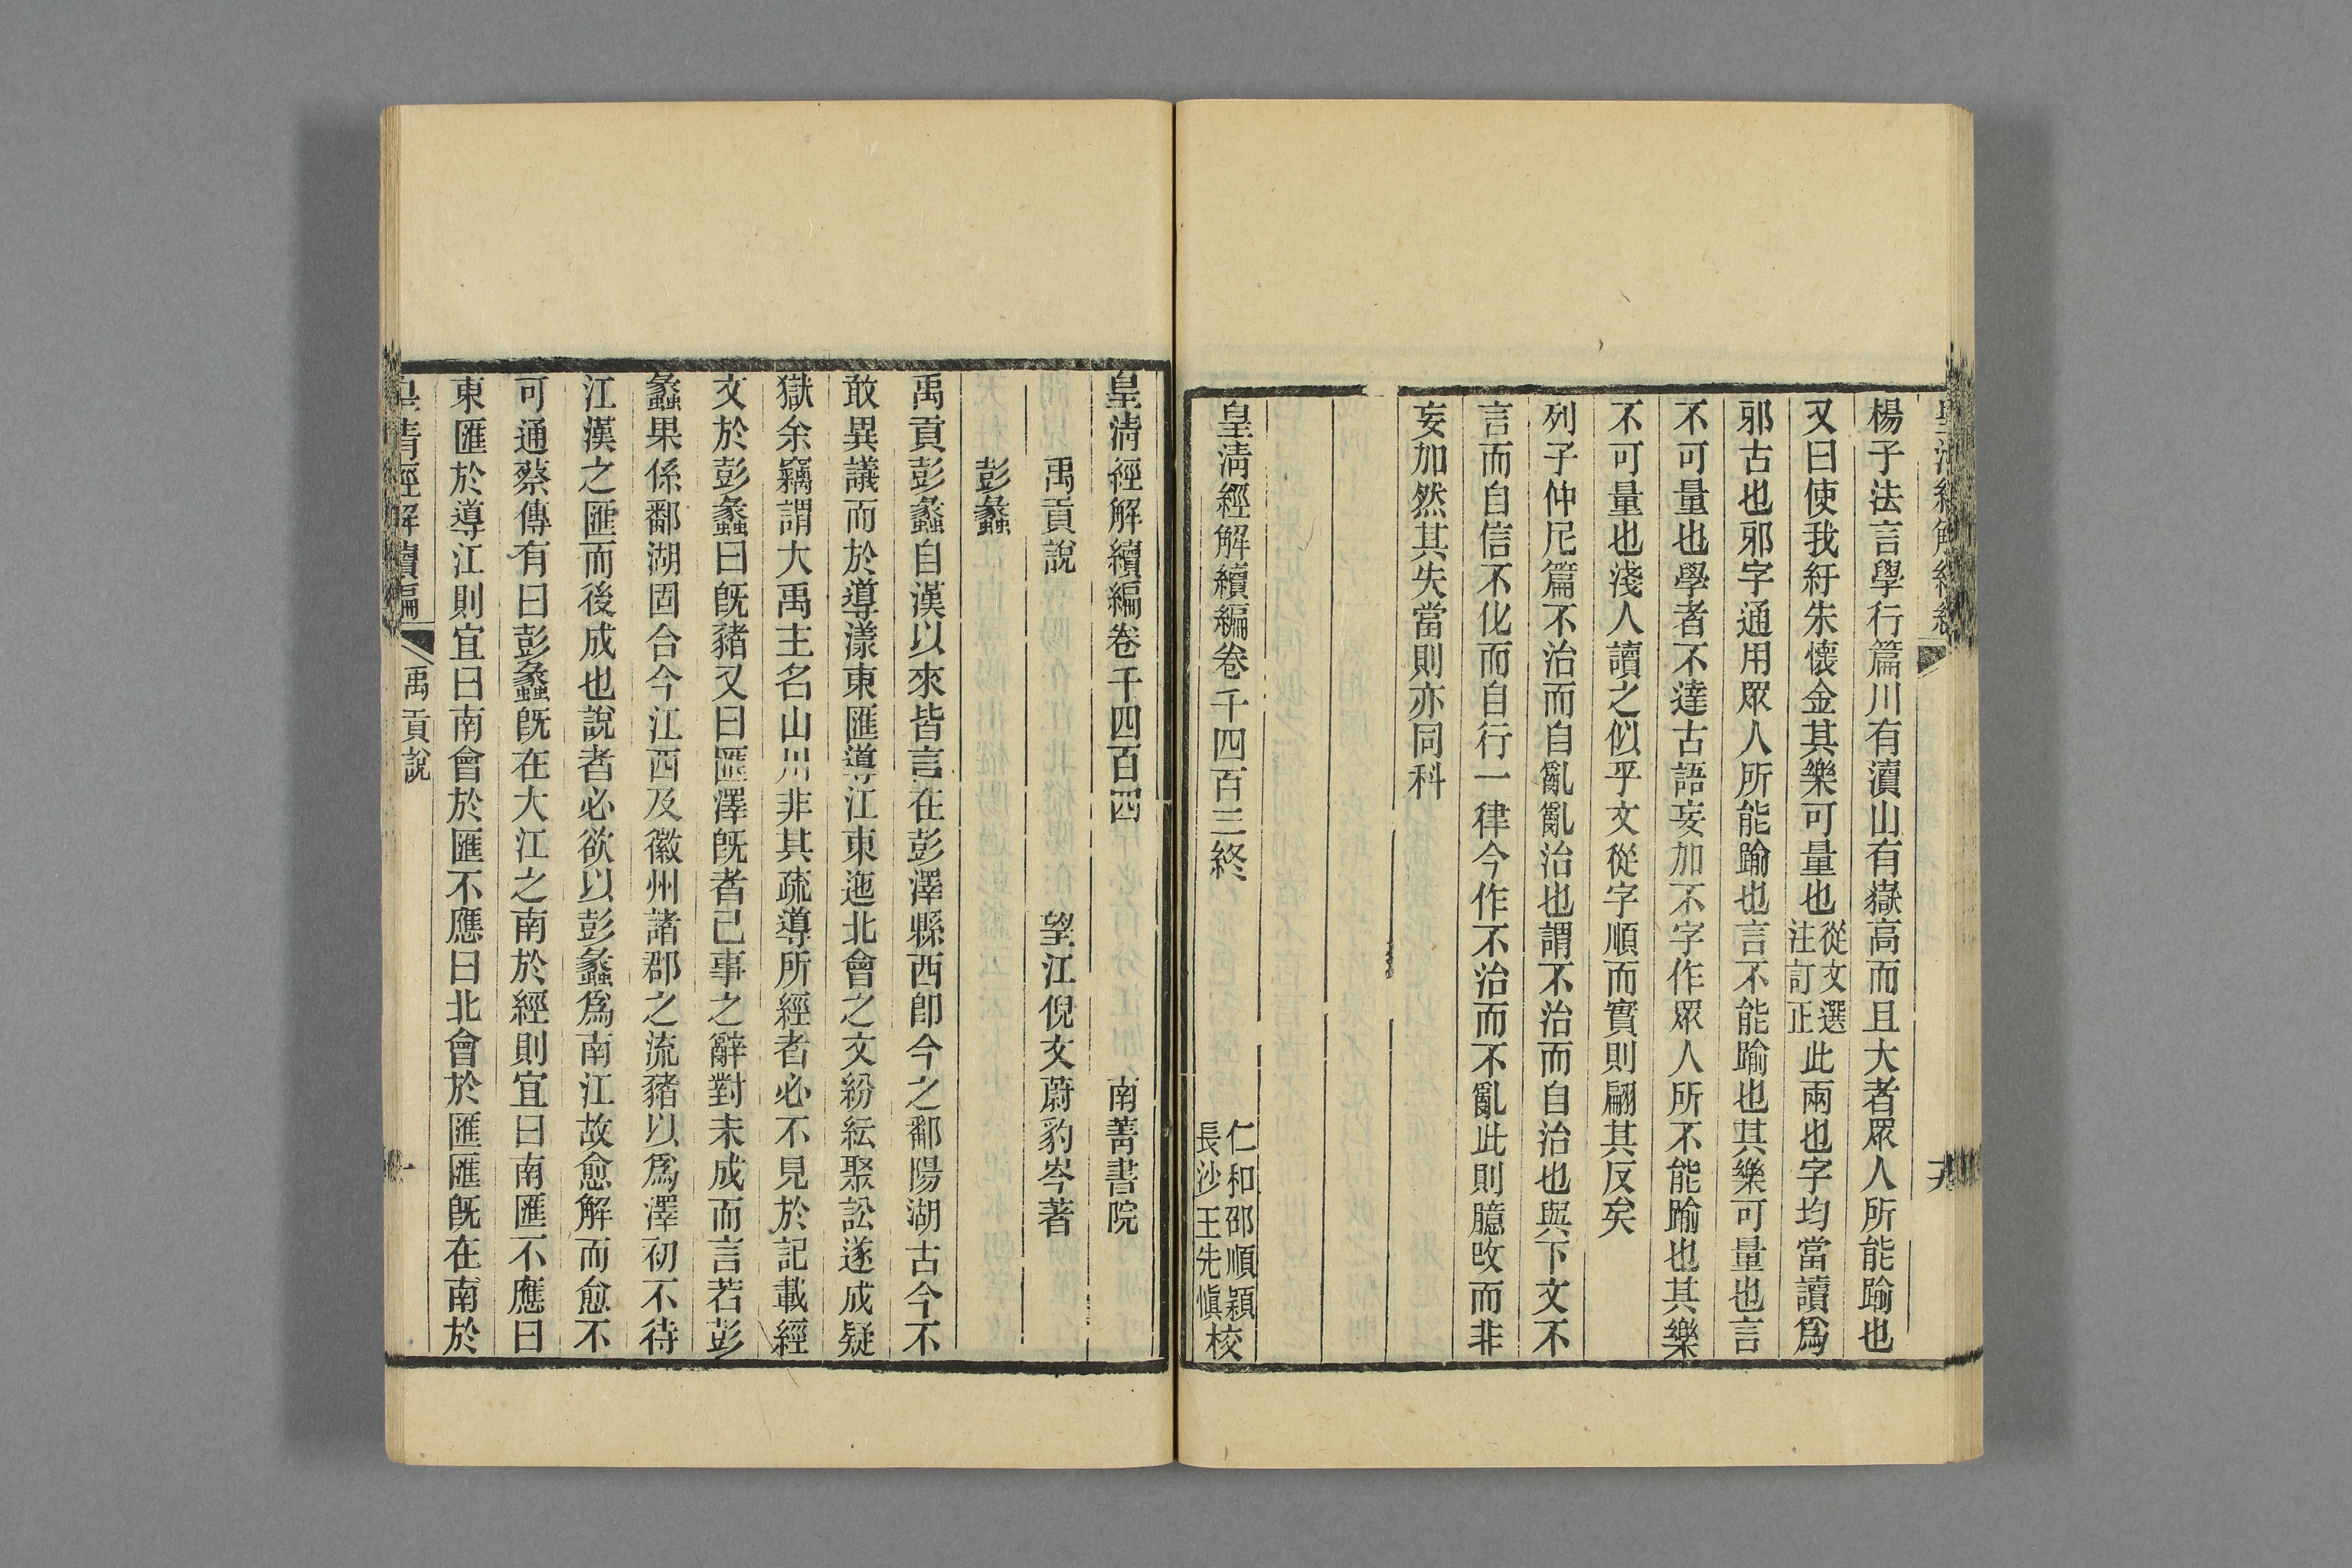 楊子法言學行篇川有瀆山有嶽高而且大者眾人所能踰也
又曰使我紆朱懷金其樂可量也從文選注訂正此兩也字均當讀爲
邪古也邪字通用眾人所能踰也言不能踰也其樂可量也言
不可量也學者不達古語妄加不字作眾人所不能踰也其樂
不可量也淺人讀之似乎文從字順而實則翩其反矣
列子仲尼篇不治而自亂亂治也謂不治而自治也與下文不
言而自信不化而自行一律今作不治而不亂此則臆改而非
妄加然其失當則亦同科
皇淸經解續編卷千四百三終
仁和邵順穎
長沙王先愼校
皇淸經解續編卷千四百四
南菁書院
禹貢說
望江倪文蔚豹岑著
彭蠡
禹貢彭蠡自漢以來皆言在彭澤縣西卽今之鄱陽湖古今不
敢異議而於導漾東匯導江東迤北會之文紛紜聚訟遂成疑
獄余竊謂大禹主名山川非其疏導所經者必不見於記載經
文於彭蠡曰旣豬又曰匯澤旣者已事之辭對未成而言若彭
蠡果係鄱湖固合今江西及徽州諸郡之流豬以爲澤初不待
江漢之匯而後成也說者必欲以彭蠡爲南江故愈解而愈不
可通蔡傳有曰彭蠡旣在大江之南於經則宜曰南匯不應曰
東匯於導江則宜曰南會於匯不應曰北會於匯匯旣在南於
皇淸經解續編
禹貢說
一